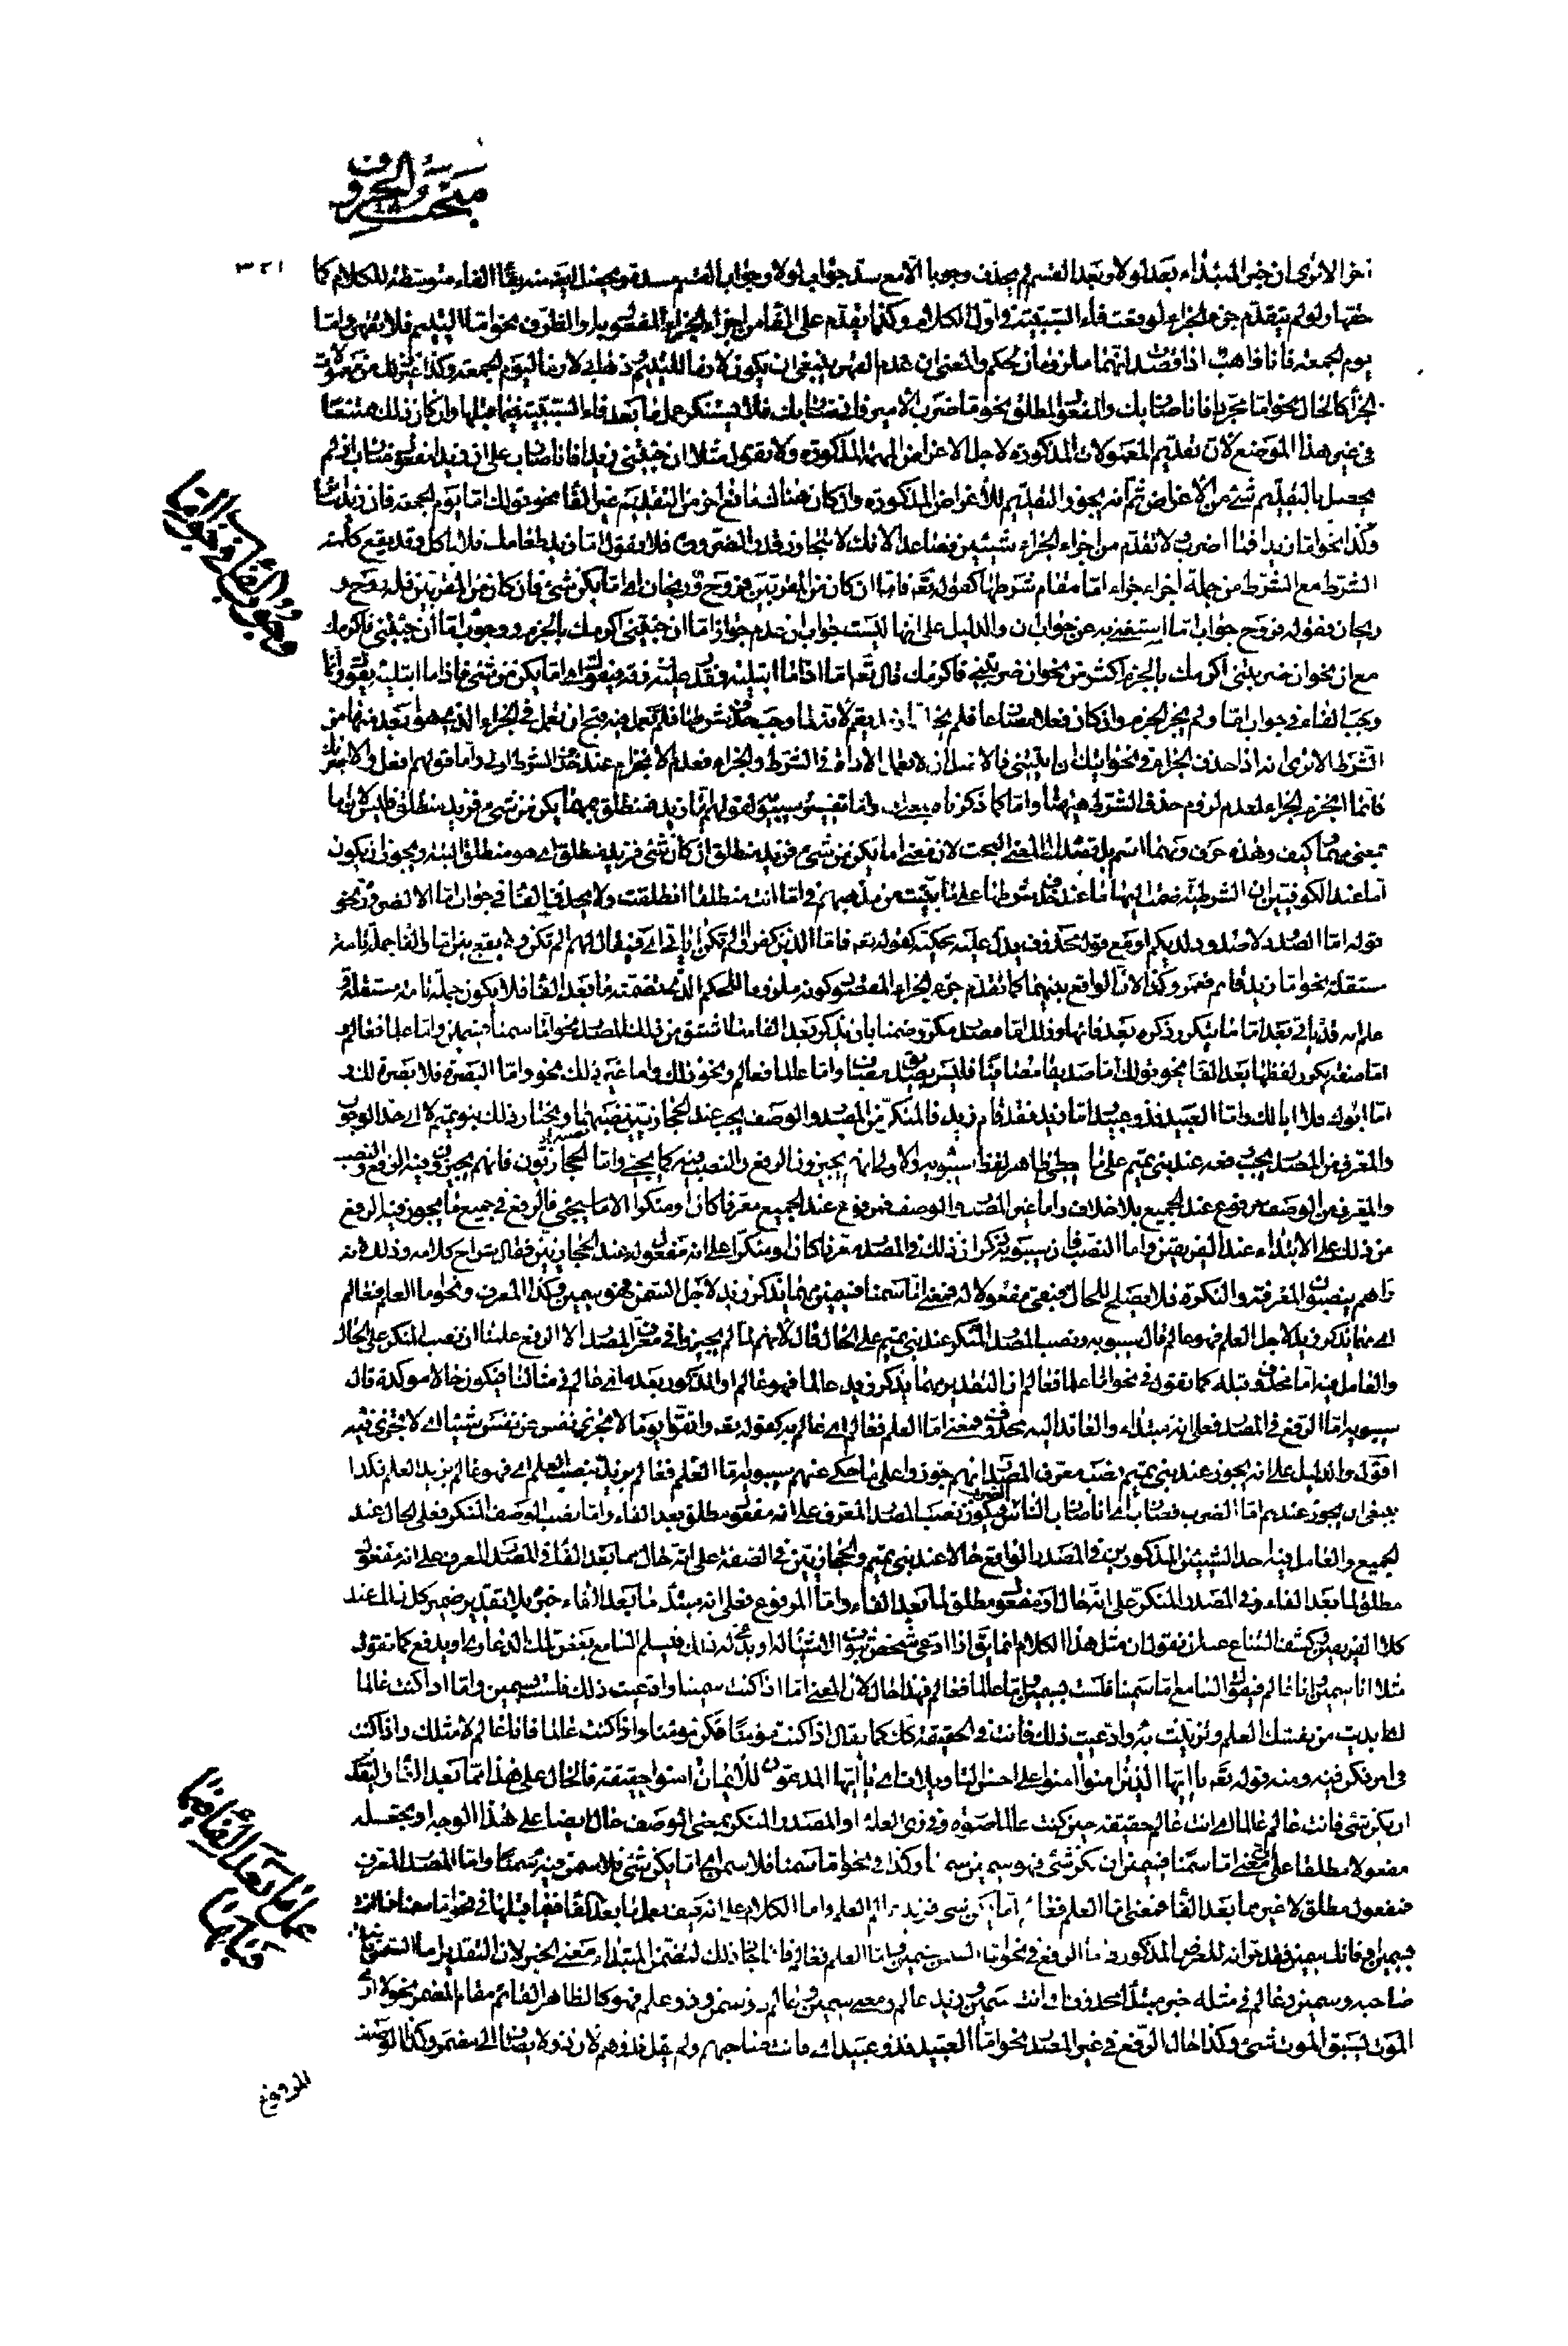 مبحث الحروف
٣٤١
آخر الا ترى ان خبر المبتداء بعد لولا وبعد القسم لم يحذف وجوبا الا مع سد جواب لولا وجواب القسم مسده ويحصل ايضا الفاء متوسطة للكلام كما
حقها ولو لم يتقدم جزء الجزاء لوقعت فاء السببية في اول الكلام وكذا يقدم على الفاء من اجزاء الجزاء المفعول به او الظرف نحو اما اليتيم فلا تقهر واما
يوم الجمعة فانا ذاهب اذا قصد انهما ملزومان لحكم والمعنى ان عدم القهر ينبغي ان يكون لازما لليتيم وذهابي لازما ليوم الجمعة وكذا غير ذلك من معمولات
الجزاء كالحال نحو اما مجردا فانا ضاربك والمفعول المطلق نحو اما ضرب الامير فانا ضاربك فلا يستنكر عمل ما بعد فاء السببية فيما قبلها وان كان ذلك ممتنعا
في غير هذا الموضع لان تقديم المعمولات المذكورة لاجل الاغراض المهمة المذكورة ولا تقول مثلا ان جئتني زيدا فانا ضارب على ان زيدا منصوب بضارب اذ لم
يحصل بالتقديم شئ من الاغراض ثم انه يجوز التقديم للاغراض المذكورة وان كان هناك مانع اخر من التقديم غير الفاء نحو قولك اما يوم الجمعة فان زيدا
وكذا نحو اما زيدا فما اضرب لا تقدم من اجزاء الجزاء شيئين فصاعدا لانك لا تتجاوز قدر الضرورة فلا تقول اما زيد طعامك فلا ياكل وقد يقع كلمة
الشرط مع الشرط من جملة اجزاء جزاء اما مقام شرطها كقوله تعه فاما ان كان من المقربين فروح وريحان اى اما يكن شئ فان كان من المقربين فله روح و
ريحان فقوله فروح جواب اما استغنى به عن جواب ان والدليل على انها ليست جواب ان عدم جواز اما ان جئتني اكرمك بالجزم ووجوب اما ان جئتني فاكرمك
مع ان نحو ان ضربتنى اكرمك بالجزم اكثر من نحو ان ضربتني فاكرمك قال تعه اما اذا ما ابتليه فقدر عليه رزقه فيقول اى اما يكن من شئ فاذا ما ابتليه يقول وانما
وجب الفاء في جواب اما ولم يجز الجزم وان كان فعلا مضارعا فلم يجز
الشرط الا ترى انه اذا حذف الجزاء في نحو
فانما انجزم الجزاء لعدم لزوم حذف الشرط هيهنا واما كما ذكرناه واما تفسير سيبويه لقولهم اما زيد فمنطلق بمهما يكن من شئ فزيد منطلق فليس لانها
بمعنى مهما كيف وهذه حرف ومهما اسم بل قصد الى المعنى البحت لان معنى اما يكن من شئ فزيد منطلق ان كان شئ فزيد منطلق اى هو منطلق البتة ويجوز ان يكون
اما عند الكوفيين ان الشرطية ضمت اليها ما عند حذف شرطها على ما بينت من مذهبهم في اما انت منطلقا انطلقت ولا يحذف الفاء في جواب اما الا لضرورة نحو
قوله اما الصدود لا صدود لديكم او مع قول محذوف يدل عليه محكيه كقوله تعه فاما الذين كفروا الم تكن اياتى اى فيقال لهم الم تكن ولا يقع بين اما والفاء جملة تامة
مستقلة نحو اما زيد قائم فعمرو كذا لان الواقع بينهما كما تقدم جزء الجزاء المقصود كونه ملزوما للحكم الذى تضمنه ما بعد الفاء فلا يكون جملة تامة مستقلة و
علم انه قد ياتي بعد اما ما يتكرر ذكره بعد فائها وذلك اما مصدر مكرر ضمنا بان يذكر بعد الفاء ما اشتق من ذلك المصدر نحو اما سمنا فسمين واما علما فعالم و
اما صفة يكرر لفظها بعد الفاء نحو قولك اما صديقا مصافيا فليس بصديق مصاف واما عالما فعالم ونحو ذلك واما غير ذلك نحو واما البصرة فلا بصرة لك و
اما ابوك فلا ابا لك واما العبيد فذو عبيد اما زيد فقد قام زيد فالمنكر من المصدر والوصف يجب عند الحجازيين نصبهما ويختار ذلك بنو تميم لا الى حد الوجوب
والمعرف من المصدر يجب رفعه عند بنى تميم على ما يعطى ظاهر لفظ سيبويه والاولى انهم يجيزون الرفع والنصب فيه كما يجئ واما الحجازيون فانهم يجيزون فيه الرفع والنصب
والمعرف من الوصف مرفوع عند الجميع بلا خلاف واما غير المصدر والوصف فمرفوع عند الجميع معرفا كان او منكرا الا ما سيجئ فالرفع في جميع ما يجوز فيه الرفع
من ذلك على الابتداء عند الفريقين واما النصب فان سيبويه ذكر ان ذلك في المصدر معرفا كان او منكرا على انه مفعول له عند الحجازيين فقال شراح كلامه وذلك لانه
راهم ينصبون المعرفة والنكرة فلا يصلح للحال فبقى مفعولا له فمعنى اما سمنا فسمين مهما يذكر زيد لاجل السمن فهو سمين وكذا المعرف ونحو اما العلم فعالم
اى مهما يذكر زيد لاجل العلم فهو عالم قال سيبويه ونصب المصدر المنكر عند بنى تميم على الحال قال لانهم لما لم يجيزوا في معرف المصدر الا الرفع علمنا ان نصب المنكر على الحال
والعامل فيه اما محذوف قبله كما تقول في نحو اما علما فعالم ان التقدير مهما يذكر زيد عالما فهو عالم او المذكور بعده اى عالم في مثالنا فيكون حالا موكدة قال
سيبويه اما الرفع في المصدر فعلى انه مبتداء والعائد اليه محذوف فمعنى اما العلم فعالم اى عالم به كقوله تعه واتقوا يوما لا تجزى نفس عن نفس شيئا اى لا تجزى فيه
اقول والدليل على انه يجوز عند بنى تميم نصب معرف المصدر انهم جوزوا على ما حكى عنهم سيبويه اما العلم فعالم بزيد بنصب العلم اى فهو عالم بزيد العلم فكذا
ينبغى ان يجوز عندهم اما الضرب فضارب اى انا ضارب الناس الضرب فيكون نصب المصدر المعرف على انه مفعول مطلق بعد الفاء واما نصب الوصف المنكر فعلى الحال عند
الجميع والعامل فيه احد الشيئين المذكورين في المصدر الواقع حالا عند بنى تميم والحجازيين في الصفة على انه حال مما بعد الفاء في المصدر المعرف على انه مفعول
مطلق لما بعد الفاء وفي المصدر المنكر على انه حال او مفعول مطلق لما بعد الفاء واما المرفوع فعلى انه مبتدء ما بعد الفاء خبره بلا تقدير ضمير كل ذلك عند
كلا الفريقين وكشف القناع عنه ان نقول ان مثل هذا الكلام انما يق اذا ادعى شخص ثبوت الاشياء له او يدعى له ذلك فيسلم السامع بعض تلك الدعاوى او يدفع كما تقول
مثلا انا سمين وانا عالم فيقول السامع اما سمينا فلست بسمين واما عالما فعالم فهذا حال لان المعنى اما اذا كنت سمينا وادعيت ذلك فلست بسمين واما اذا كنت عالما
ابديت من نفسك العلم وتزينت به وادعيت ذلك فانت في الحقيقة كذلك كما يقال اذا كنت مؤمنا فكن مؤمنا واذا كنت عالما فانا عالم لا مثلك واذا كنت
في امر فكن فيه ومنه قوله تعه يا ايها الذين امنوا امنوا على احسن التاويلات اى يا ايها المدعون للايمان امنوا حقيقة فالحال على هذا مما بعد الفاء والتقدير
ان يكن شئ فانت عالم عالما اى انت عالم حقيقة حين كنت عالما صورة وفي زى العلماء او المصدر المنكر بمعنى الوصف حال ايضا على هذا الوجه او يجعله
مفعولا مطلقا على معنى اما سمنا فسمين ان يكن شئ فهو سمين سمنا وكذا في نحو اما سمنا فلا سمن اى اما يكن شئ فلا سمن فيه سمنا واما المصدر المعرف
فمفعول مطلق لا غير مما بعد الفاء فمعنى اما العلم فعالم اما يكن شئ فزيد عالم العلم واما الكلام على انه كيف يعمل ما بعد الفاء فيما قبلها في نحو اما سمنا فانت
سمين وفانك سمين فقد مر انه للغرض المذكور واما الرفع في نحو اما السمن فسمين واما العلم فعالم فانما جاز ذلك لتضمن المبتداء معنى الخبر لان التقدير اما السمن
صاحبه وسمين وعالم في مثله خبر مبتدأ محذوف اى انت سمين وزيد عالم ومعنى سمين وعالم ذو سمن وذو علم فهو كالظاهر القائم مقام المضمر نحو لا ارى
الموت يسبق الموت شئ وكذا حال الرفع في غير المصدر نحو اما العبيد فذو عبيد اى فانت صاحبهم ولم يقل فذوهم لان ذو لا يضاف الى مضمر وكذا الوصف
المرفوع
عمل ما بعد الفاء فيما قبلها